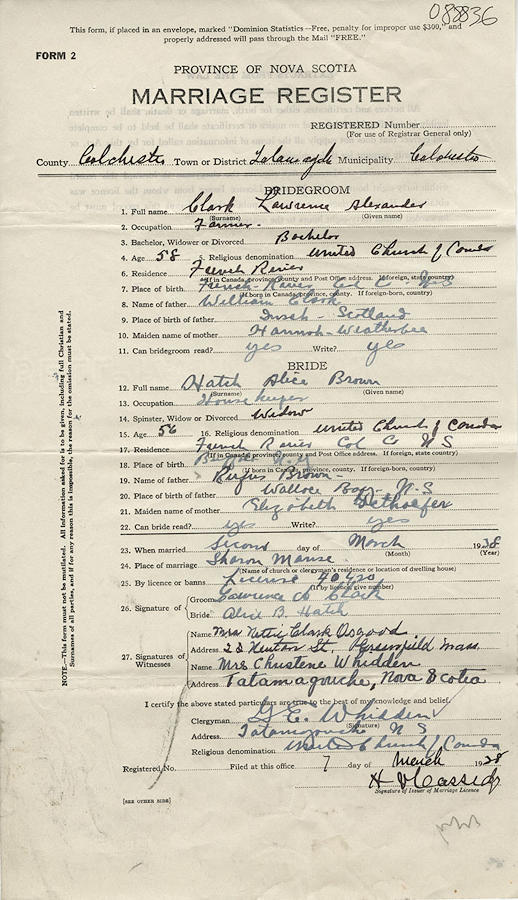 088836
This form, if placed in an envelope, marked "Dominion Statistics—Free, penalty for improper use $300," and
properly addressed will pass through the Mail "FREE."
FORM 2
PROVINCE OF NOVA SCOTIA
MARRIAGE REGISTER
REGISTERED Number
(For use of Registrar General only)
County Colchester Town or District Tatamagouche Municipality Colchester
BRIDEGROOM
1. Full name Clark Lawrence Alexander
(Surname) (Given name)
2. Occupation Farmer.
3. Bachelor, Widower or Divorced Bachelor
4. Age 58 5. Religious denomination United Church of Canada
6. Residence French River
(If in Canada, province, county and Post Office address. If foreign, state country)
7. Place of birth French River Col C. NS
(If born in Canada, province, county. If foreign-born, country)
8. Name of father William Clark
9. Place of birth Scotland
10. Maiden name of mother Hannah Weatherbee
11. Can bridegroom read? yes Write? yes
BRIDE
12. Full name Hatch Alice Brown
(Surname) (Given name)
13. Occupation Housekeeper
14. Spinster, Widow or Divorced Widow
15. Age 56 16. Religious denomination United Church of Canada
17. Residence French River Col Co NS
(If in Canada, province, county and Post Office address. If foreign, state country)
18. Place of birth
(If born in Canada, province, county. If foreign-born, country)
19. Name of father Rufus Brown
20. Place of birth of father Wallace Bay N.S
21. Maiden name of mother Elizabeth
22. Can bride read? yes Write? yes
23. When married Second day of March 1938
(Month) (Year)
24. Place of marriage Sharon Manse
(Name of church or clergyman's residence or location of dwelling house)
25. By licence or banns License 40420
(If by licence, give number)
26. Signature of Groom Lawrence A Clark
Bride Alice B. Hatch
27. Signatures of Witnesses Name Mrs Nettie Clark Osgood
Address St. Greenfield Mass.
Name Mrs Christene Whidden
Address Tatamagouche, Nova Scotia
I certify the above stated particulars are true to the best of my knowledge and belief.
Clergyman G E. Whidden
(Signature)
Address Tatamagouche N S
Religious denomination United Church of Canada
Registered No. Filed at this office 7 day of March 1938
Cassidy
Signature of Issuer of Marriage Licence
[SEE OTHER SIDE]
NOTE.—This form must not be mutilated. All information asked for is to be given, including full Christian and
Surnames of all parties, and if for any reason this is impossible, the reason for the omission must be stated.